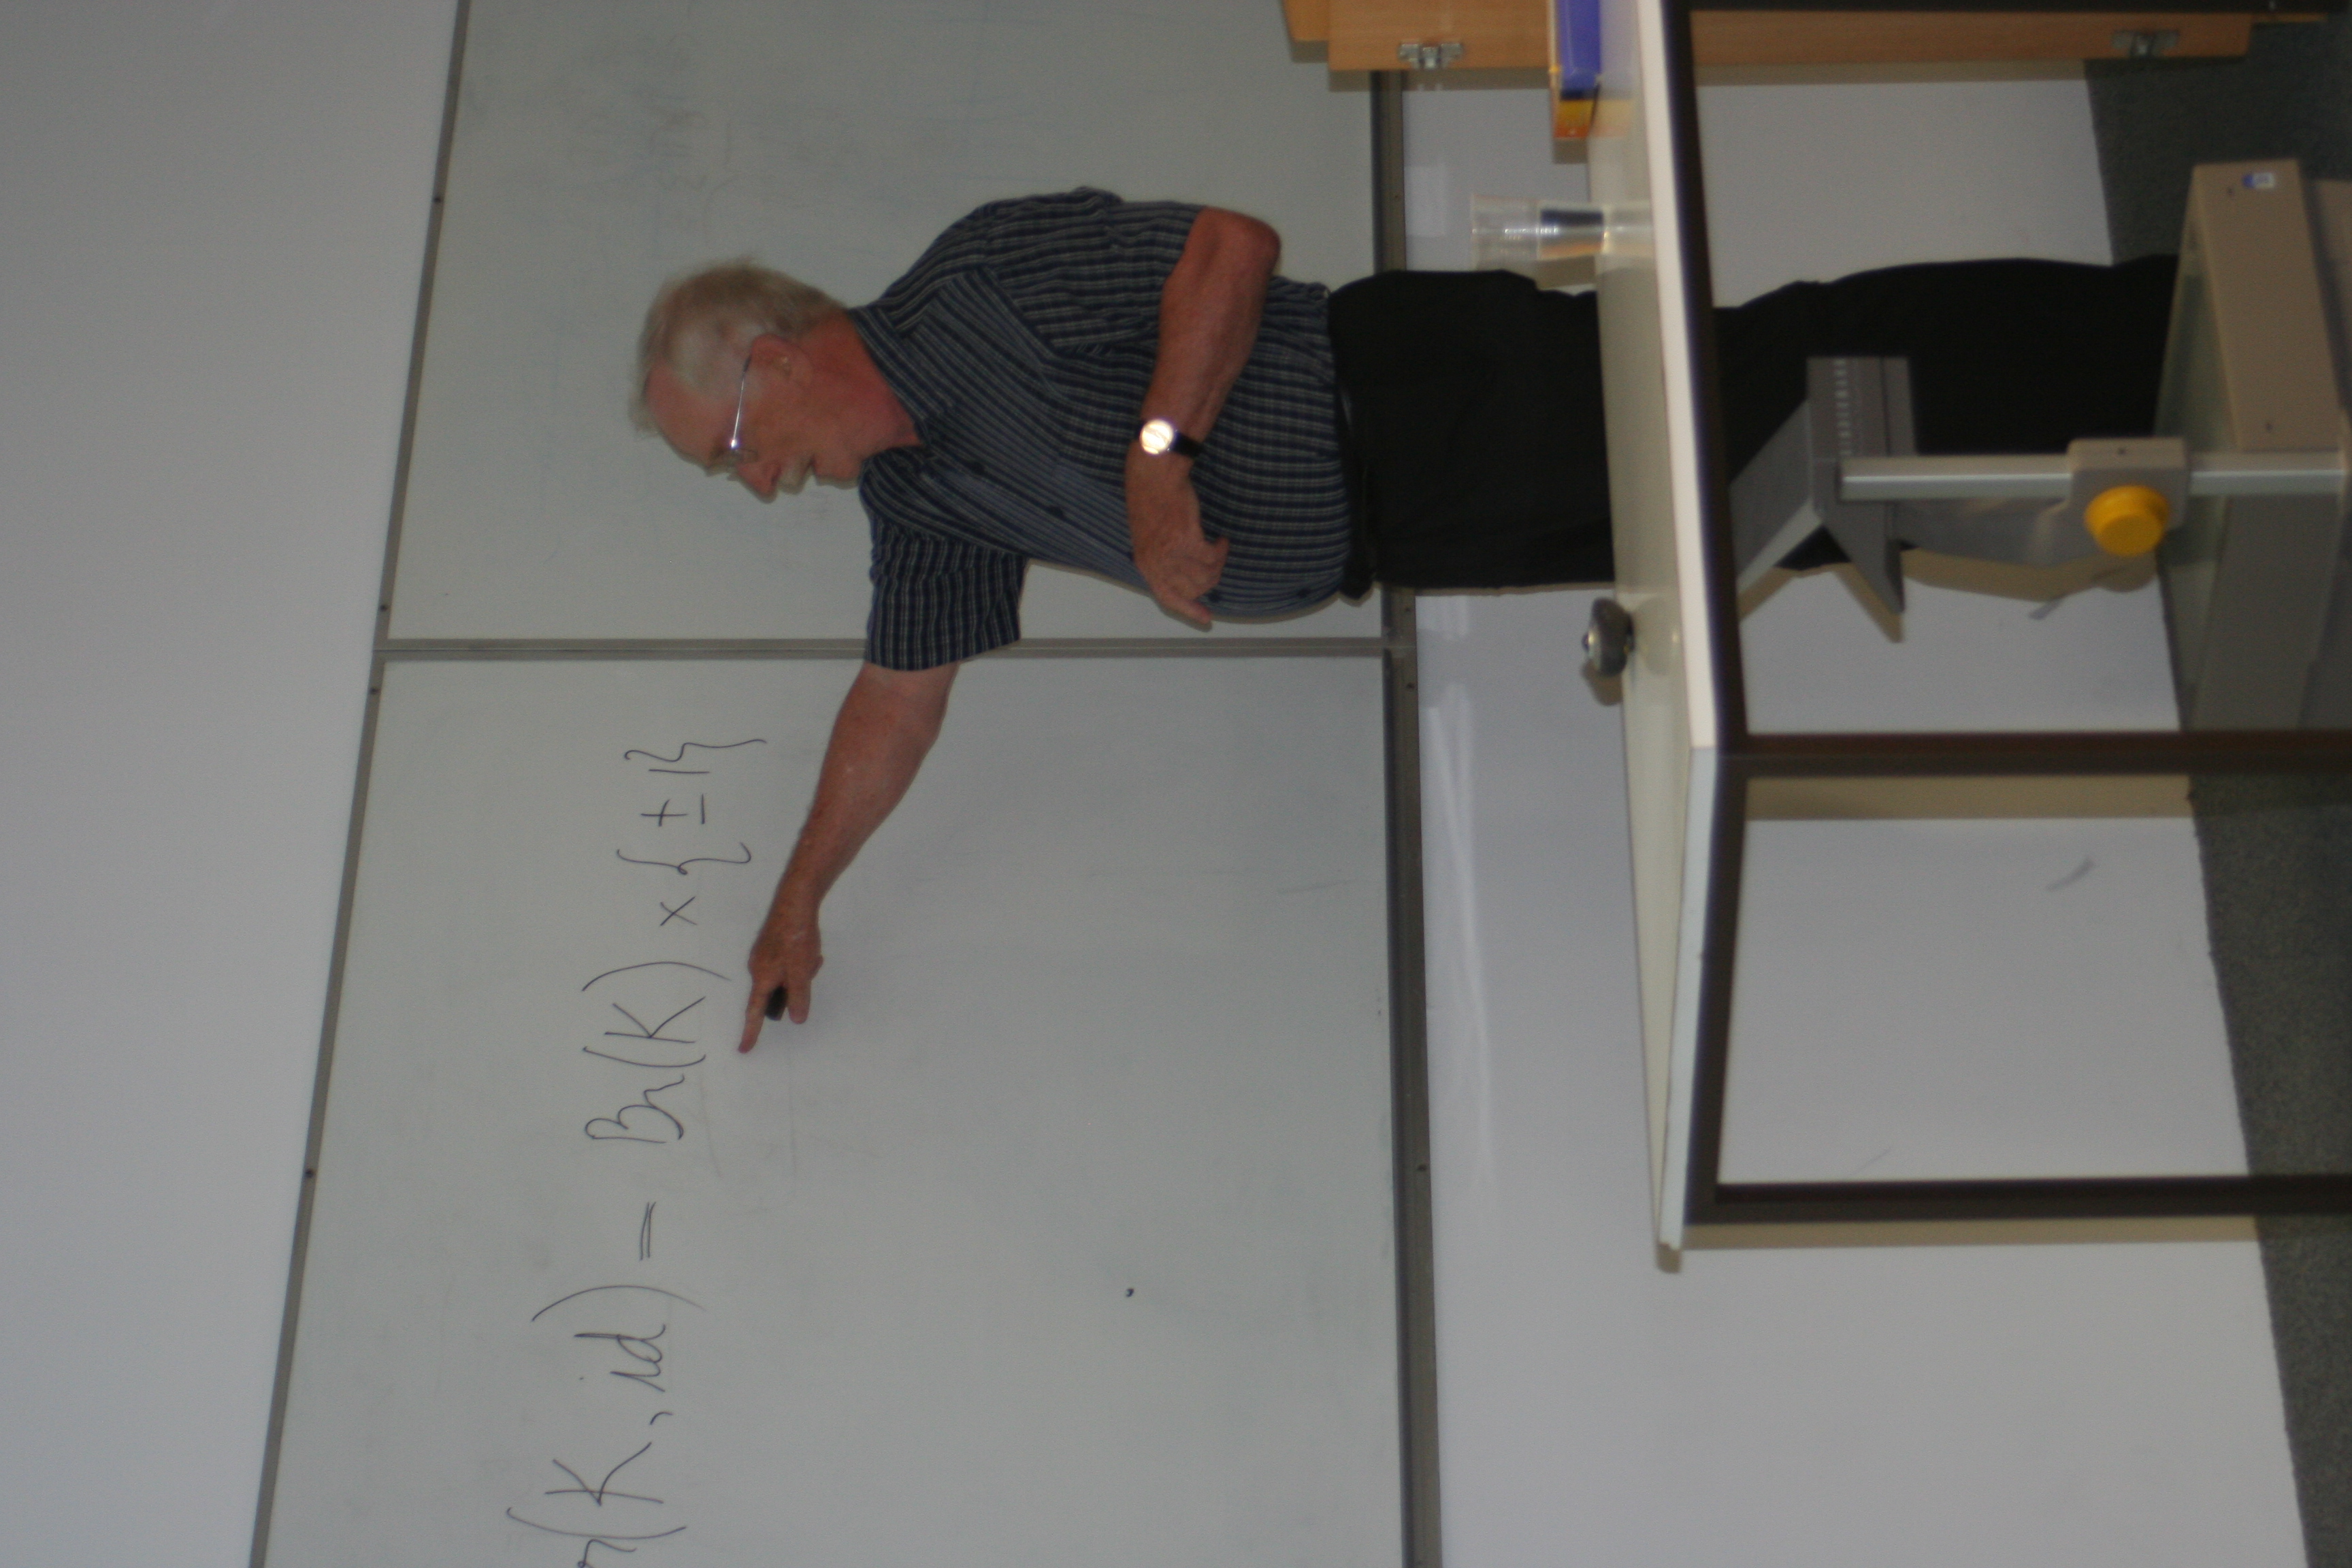 r(K, id) = Br(K) × {±1}